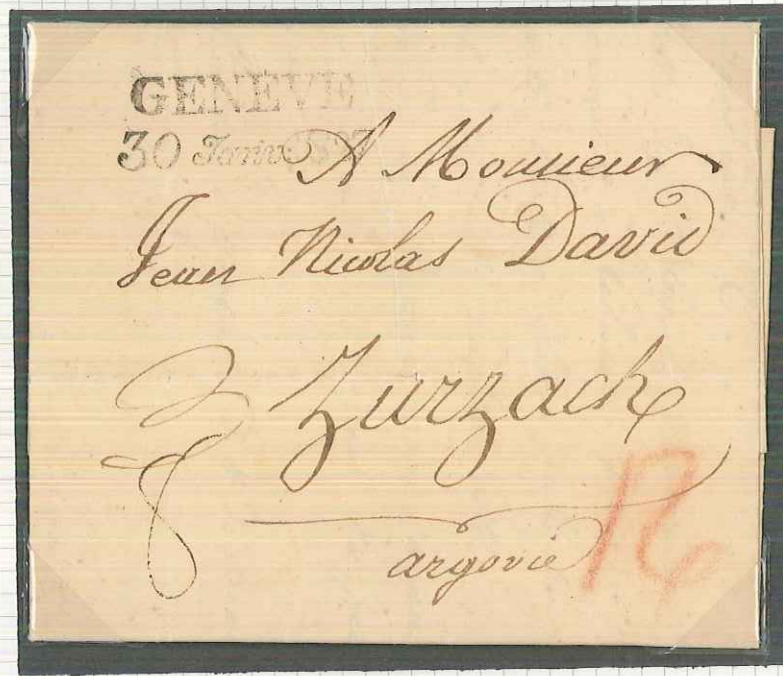 GENEVE
30 Janv. 1827
A Monsieur
Jean Nicolas David
Zurzach
argovie